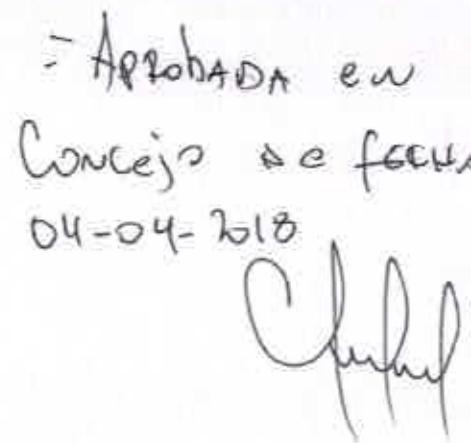 - Aprobada en
Concejo de fecha
04-04-2018